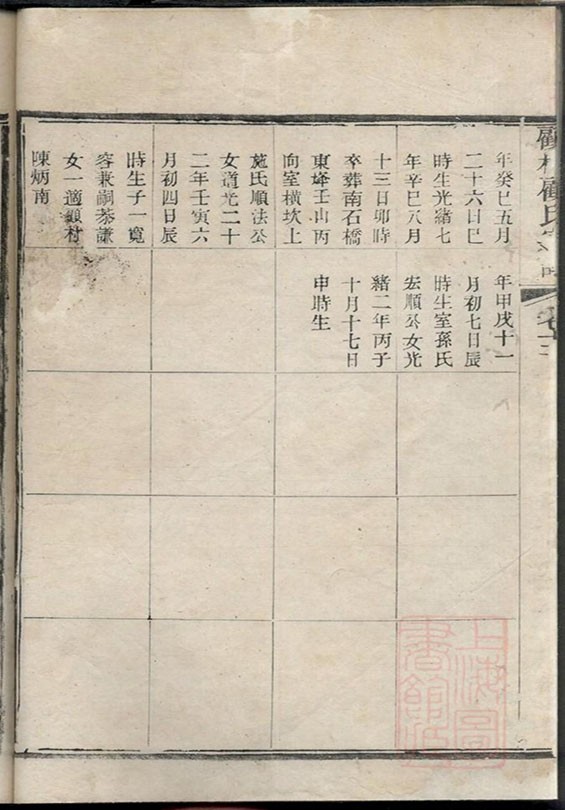 年癸巳五月
二十六日巳
時生光緒七
年辛巳八月
十三日卯時
卒葬南石橋
東㙜壬山丙
向室橫坎上
施氏順法公
女道光二十
二年壬寅六
月初四日辰
時生子一寬
容兼嗣茶謙
女一適顧村
陳炳南
年甲戌十一
月初七日辰
時生室孫氏
宏順公女光
緒二年丙子
十月十七日
申時生
上海圖
書館藏